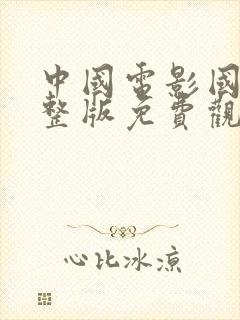 中國電影國
整版免費觀
心比冰凉